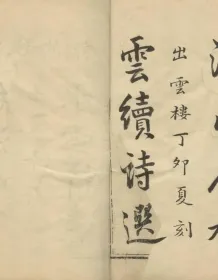 出雲樓丁卯夏刻
雲續詩選